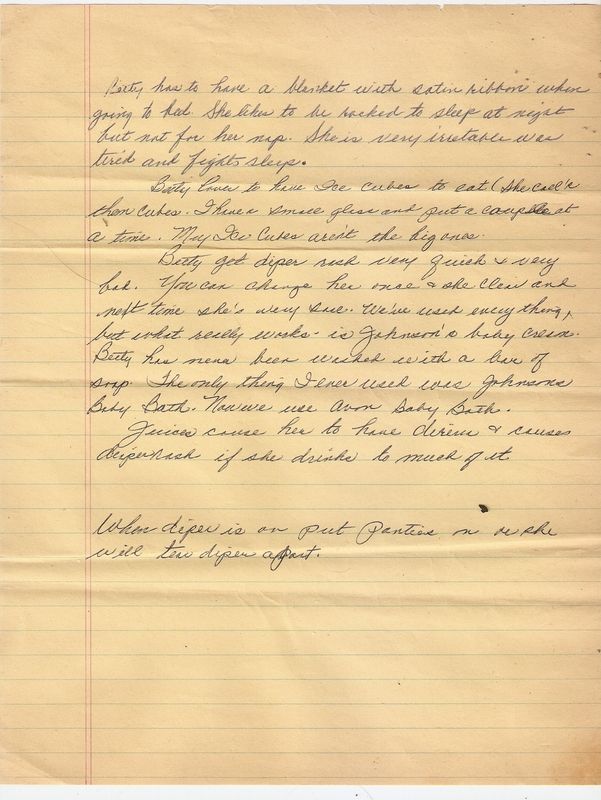 Betty has to have a blanket with satin ribbon when
going to bed. She likes to be rocked to sleep at night
but not for her nap. She is very irretable when
tired and fights sleep.
Betty loves to have Ice Cubes to eat (she call's
them cubes. I have a small glass and put a couple at
a time. My Ice Cubes aren't the big ones.
Betty get diper rash very quick & very
bad. You can change her once & she clear and
next time she's very sore. We've used everything,
but what really works - is Johnson's baby cream.
Betty has never been washed with a bar of
soap. The only thing I ever used was Johnsons
Baby Bath. Now we use Avon Baby Bath.
Juices cause her to have & causes
diaper rash if she drinks to much of it
When diper is on put Panties on or she
will tear diper apart.